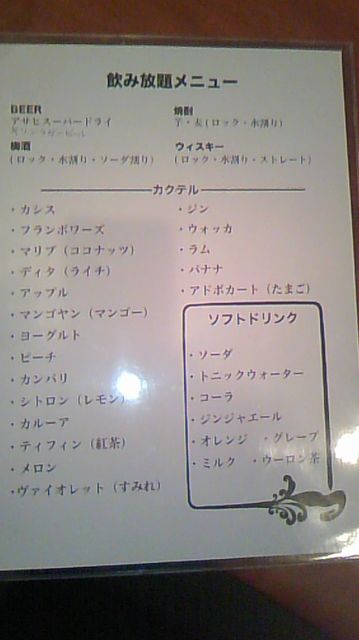 飲み放題メニュー
BEER
アサヒスーパードライ
焼酎
芋・麦(ロック・水割り)
梅酒
(ロック・水割り・ソーダ割り)
ウィスキー
(ロック・水割り・ストレート)
カクテル
・カシス
・フランボワーズ
・マリブ（ココナッツ）
・ディタ（ライチ）
・アップル
・マンゴヤン（マンゴー）
・ヨーグルト
・ピーチ
・カンパリ
・シトロン（レモン）
・カルーア
・ティフィン（紅茶）
・メロン
・ヴァイオレット（すみれ）
・ジン
・ウォッカ
・ラム
・バナナ
・アドボカート（たまご）
ソフトドリンク
・ソーダ
・トニックウォーター
・コーラ
・ジンジャエール
・オレンジ ・グレープ
・ミルク ・ウーロン茶